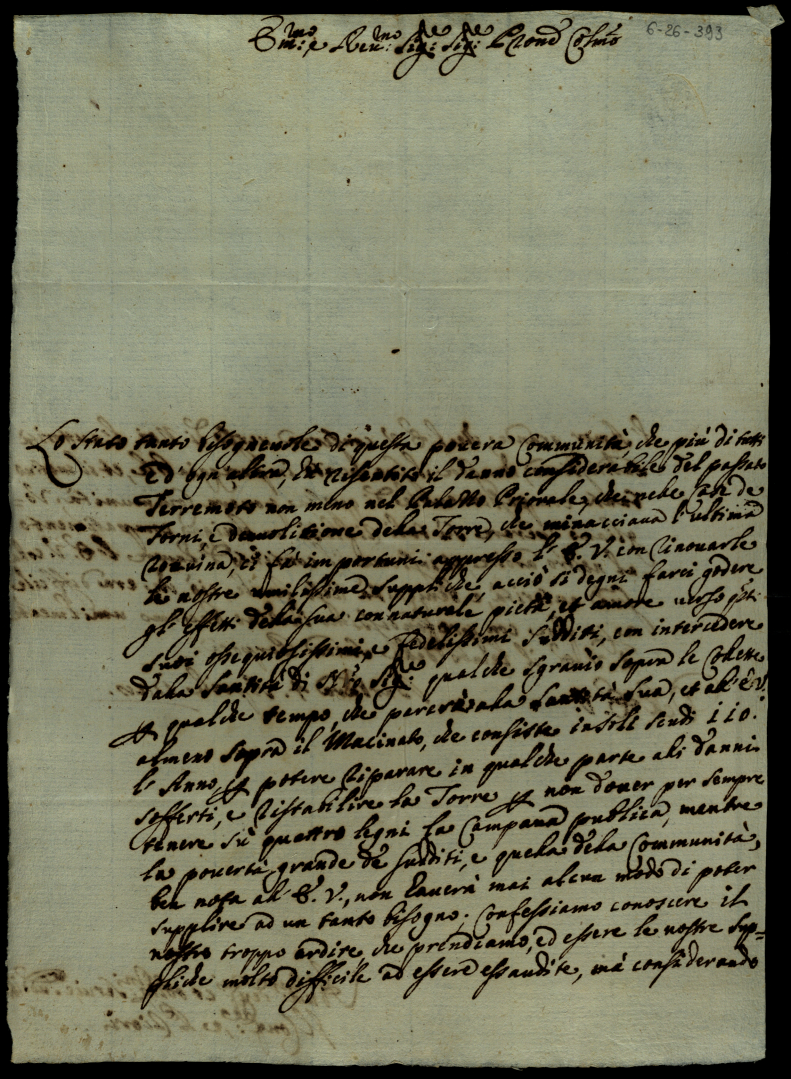 Em:mo e Reu:mo Sig:re Sig:re Prone Col:mo
6-26-393
Lo Stato tanto bisogneuole di questa pouera Communità, che più di tutti
ed' ogn'altra, hà risentito il danno considerabile del passato
Terremoto non meno nel Palazzo Priorale, che nele Case de
Forni, e demolitione dela Torre, che minacciaua l'ultima
rouina, ci fà importuni appresso l'E. V. con rinouarle
le nostre umilissime suppliche, acciò si degni farci godere
gl'effetti dela sua connaturale pietà, et amore uerso q:sti
suoi ossequiosissimi, e fedelissimi sudditi, con intercedere
dala Santità di N:ro Sig:re qualche sgrauio sopra le Colette
p qualche tempo, che parerà ala Santità Sua, et al' E. V.
almeno sopra il Macinato, che consiste in soli scudi 110:
l'Anno, p potere riparare in qualche parte ali danni
sofferti, e ristabilire la Torre p non douer per sempre
tenere sù quattro legni la Campana publica, mentre
la pouertà grande de sudditi, e quela dela Communità,
ben nota al' E. V., non hauerà mai alcun modo di poter
supplire ad un tanto bisogno. Confessiamo conoscere il
nostro troppo ardire, che prendiamo, ed essere le nostre sup=
pliche molto difficile ad essere essaudite, mà considerando